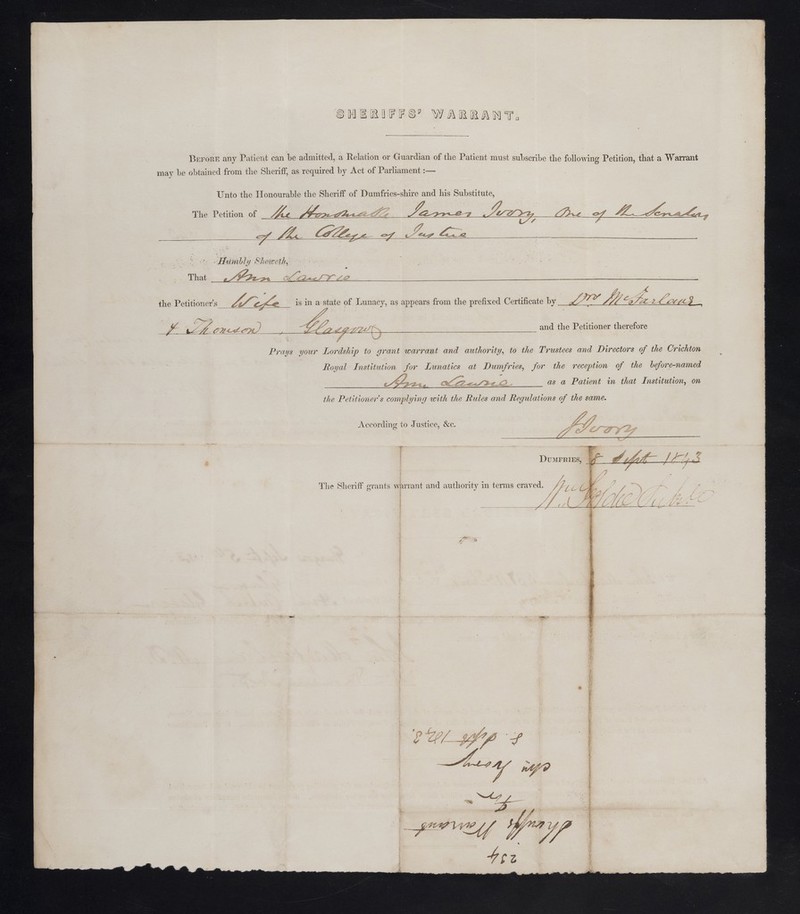 SHERIFFS' WARRANT.
BEFORE any Patient can be admitted, a Relation or Guardian of the Patient must subscribe the following Petition, that a Warrant
may be obtained from the Sheriff, as required by Act of Parliament :—
Unto the Honourable the Sheriff of Dumfries-shire and his Substitute,
The Petition of the Honourable James Ivory, One of the Senators
of the College of Justice
Humbly Sheweth,
That Ann Lawrie
the Petitioner's Wife is in a state of Lunacy, as appears from the prefixed Certificate by Drs McFarlane
& Thomson, Glasgow and the Petitioner therefore
Prays your Lordship to grant warrant and authority, to the Trustees and Directors of the Crichton
Royal Institution for Lunatics at Dumfries, for the reception of the before-named
Ann Lawrie as a Patient in that Institution, on
the Petitioner's complying with the Rules and Regulations of the same.
According to Justice, &c.
J Ivory
DUMFRIES, 8 Sept 1843
The Sheriff grants warrant and authority in terms craved.
Wm
234
Sheriffs Warrant
for
Ivory
8 Sept 1843.